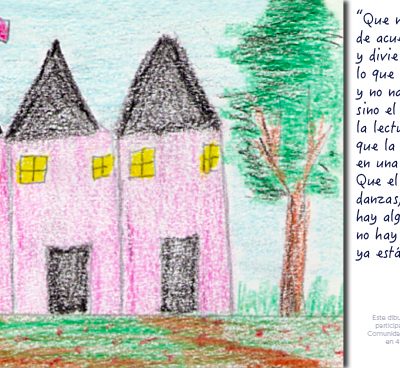 "Que n
de acu
y divie
lo que
y no na
sino el
la lectu
que la
en una
Que el
danzas,
hay alg
no hay
ya está
Este dibu
particip
Comunida
en 4